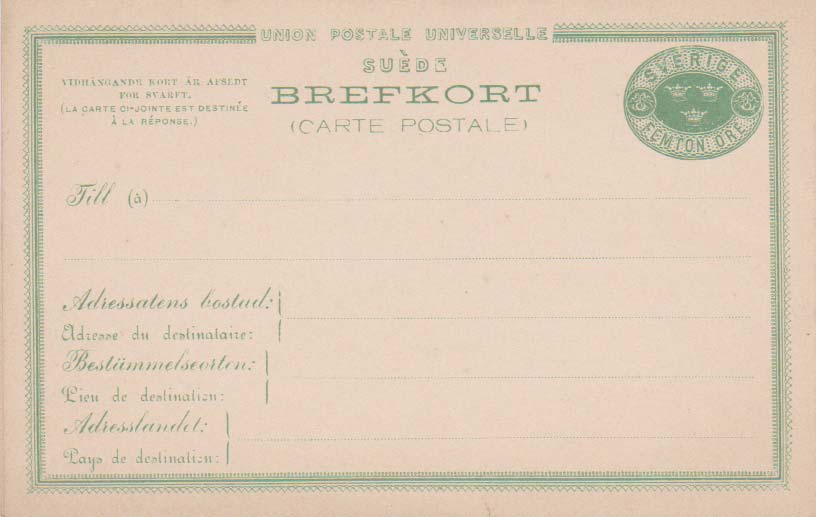 UNION POSTALE UNIVERSELLE
SUÈDE
BREFKORT
(CARTE POSTALE)
VIDHÄNGANDE KORT ÄR AFSEDT
FÖR SVARET.
(LA CARTE CI-JOINTE EST DESTINÉE
À LA RÉPONSE.)
SVERIGE
FEMTON ÖRE
Till (à)
Adressatens bostad:
Adresse du destinataire:
Bestämmelseorten:
Lieu de destination:
Adresslandet:
Pays de destination: